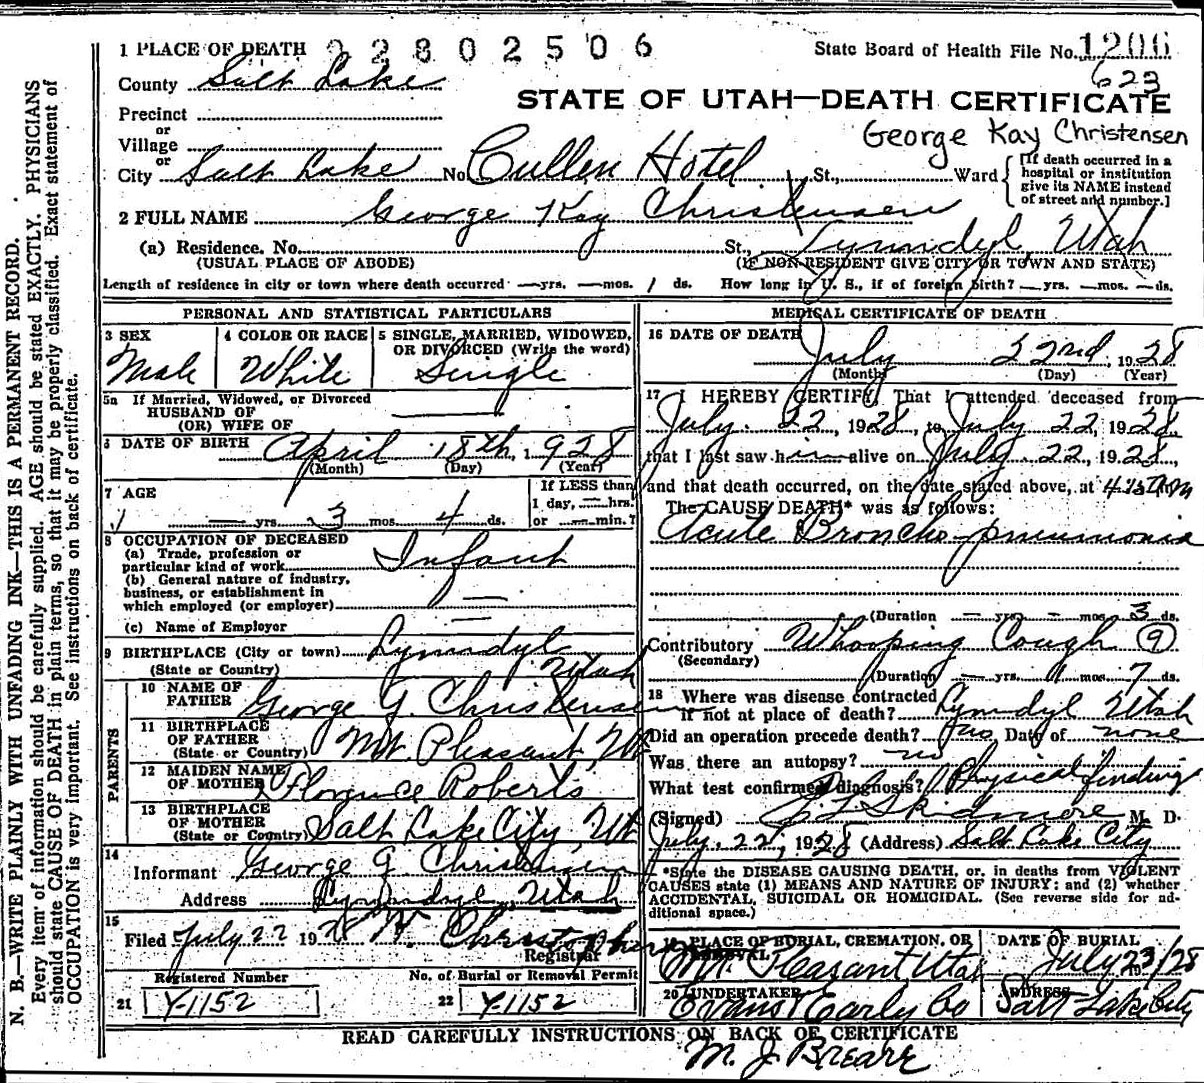 1 PLACE OF DEATH 02802506 State Board of Health File No. 1206
County Salt Lake 623
STATE OF UTAH—DEATH CERTIFICATE
Precinct
or
George Kay Christensen
Village
or
City Salt Lake No Cullen Hotel St., Ward [If death occurred in a hospital or institution give its NAME instead of street and number.]
2 FULL NAME George Kay Christensen
(a) Residence. No. St., Lynndyl, Utah
(USUAL PLACE OF ABODE) (IF NON-RESIDENT GIVE CITY OR TOWN AND STATE)
Length of residence in city or town where death occurred — yrs. — mos. 1 ds. How long in U. S., if of foreign birth? — yrs. — mos. — ds.
PERSONAL AND STATISTICAL PARTICULARS
3 SEX
Male
4 COLOR OR RACE
White
5 SINGLE, MARRIED, WIDOWED, OR DIVORCED (Write the word)
Single
5a If Married, Widowed, or Divorced
HUSBAND OF
(OR) WIFE OF
6 DATE OF BIRTH April 18th, 1928
(Month) (Day) (Year)
7 AGE
— yrs. 3 mos. 4 ds.
If LESS than
1 day, — hrs.
or — min.?
8 OCCUPATION OF DECEASED
(a) Trade, profession or
particular kind of work Infant
(b) General nature of industry,
business, or establishment in
which employed (or employer) —
(c) Name of Employer
9 BIRTHPLACE (City or town) Lynndyl
(State or Country) Utah
PARENTS
10 NAME OF
FATHER George G. Christensen
11 BIRTHPLACE
OF FATHER
(State or Country) Mt. Pleasant, Ut
12 MAIDEN NAME
OF MOTHER Florence Roberts
13 BIRTHPLACE
OF MOTHER
(State or Country) Salt Lake City, Ut
14
Informant George G Christensen
Address Lynndyl, Utah
15
Filed July 22 1928
Registrar
Registered Number No. of Burial or Removal Permit
21 Y-1152 22 Y-1152
MEDICAL CERTIFICATE OF DEATH
16 DATE OF DEATH
July 22nd, 1928
(Month) (Day) (Year)
17 I HEREBY CERTIFY, That I attended deceased from
July 22, 1928, to July 22, 1928,
that I last saw him alive on July 22, 1928,
and that death occurred, on the date stated above, at
The CAUSE DEATH* was as follows:
Acute Broncho-pneumonia
(Duration — yrs. — mos. 3 ds.
Contributory Whooping Cough 9
(Secondary)
(Duration — yrs. mos. 7 ds.
18 Where was disease contracted
if not at place of death? Lynndyl Utah
Did an operation precede death? no Date of none
Was there an autopsy? no
What test confirmed diagnosis? Physical finding
(Signed) Skidmore M. D.
July 22, 1928 (Address) Salt Lake City
*State the DISEASE CAUSING DEATH, or, in deaths from VIOLENT
CAUSES state (1) MEANS AND NATURE OF INJURY: and (2) whether
ACCIDENTAL, SUICIDAL OR HOMICIDAL. (See reverse side for ad-
ditional space.)
19 PLACE OF BURIAL, CREMATION, OR
REMOVAL
Mt. Pleasant Utah
DATE OF BURIAL
July 23/28
20 UNDERTAKER
Evans & Early Co
ADDRESS
Salt Lake City
READ CAREFULLY INSTRUCTIONS ON BACK OF CERTIFICATE
M. J.
N. B.—WRITE PLAINLY WITH UNFADING INK—THIS IS A PERMANENT RECORD.
Every item of information should be carefully supplied. AGE should be stated EXACTLY. PHYSICIANS
should state CAUSE OF DEATH in plain terms, so that it may be properly classified. Exact statement of
OCCUPATION is very important. See instructions on back of certificate.